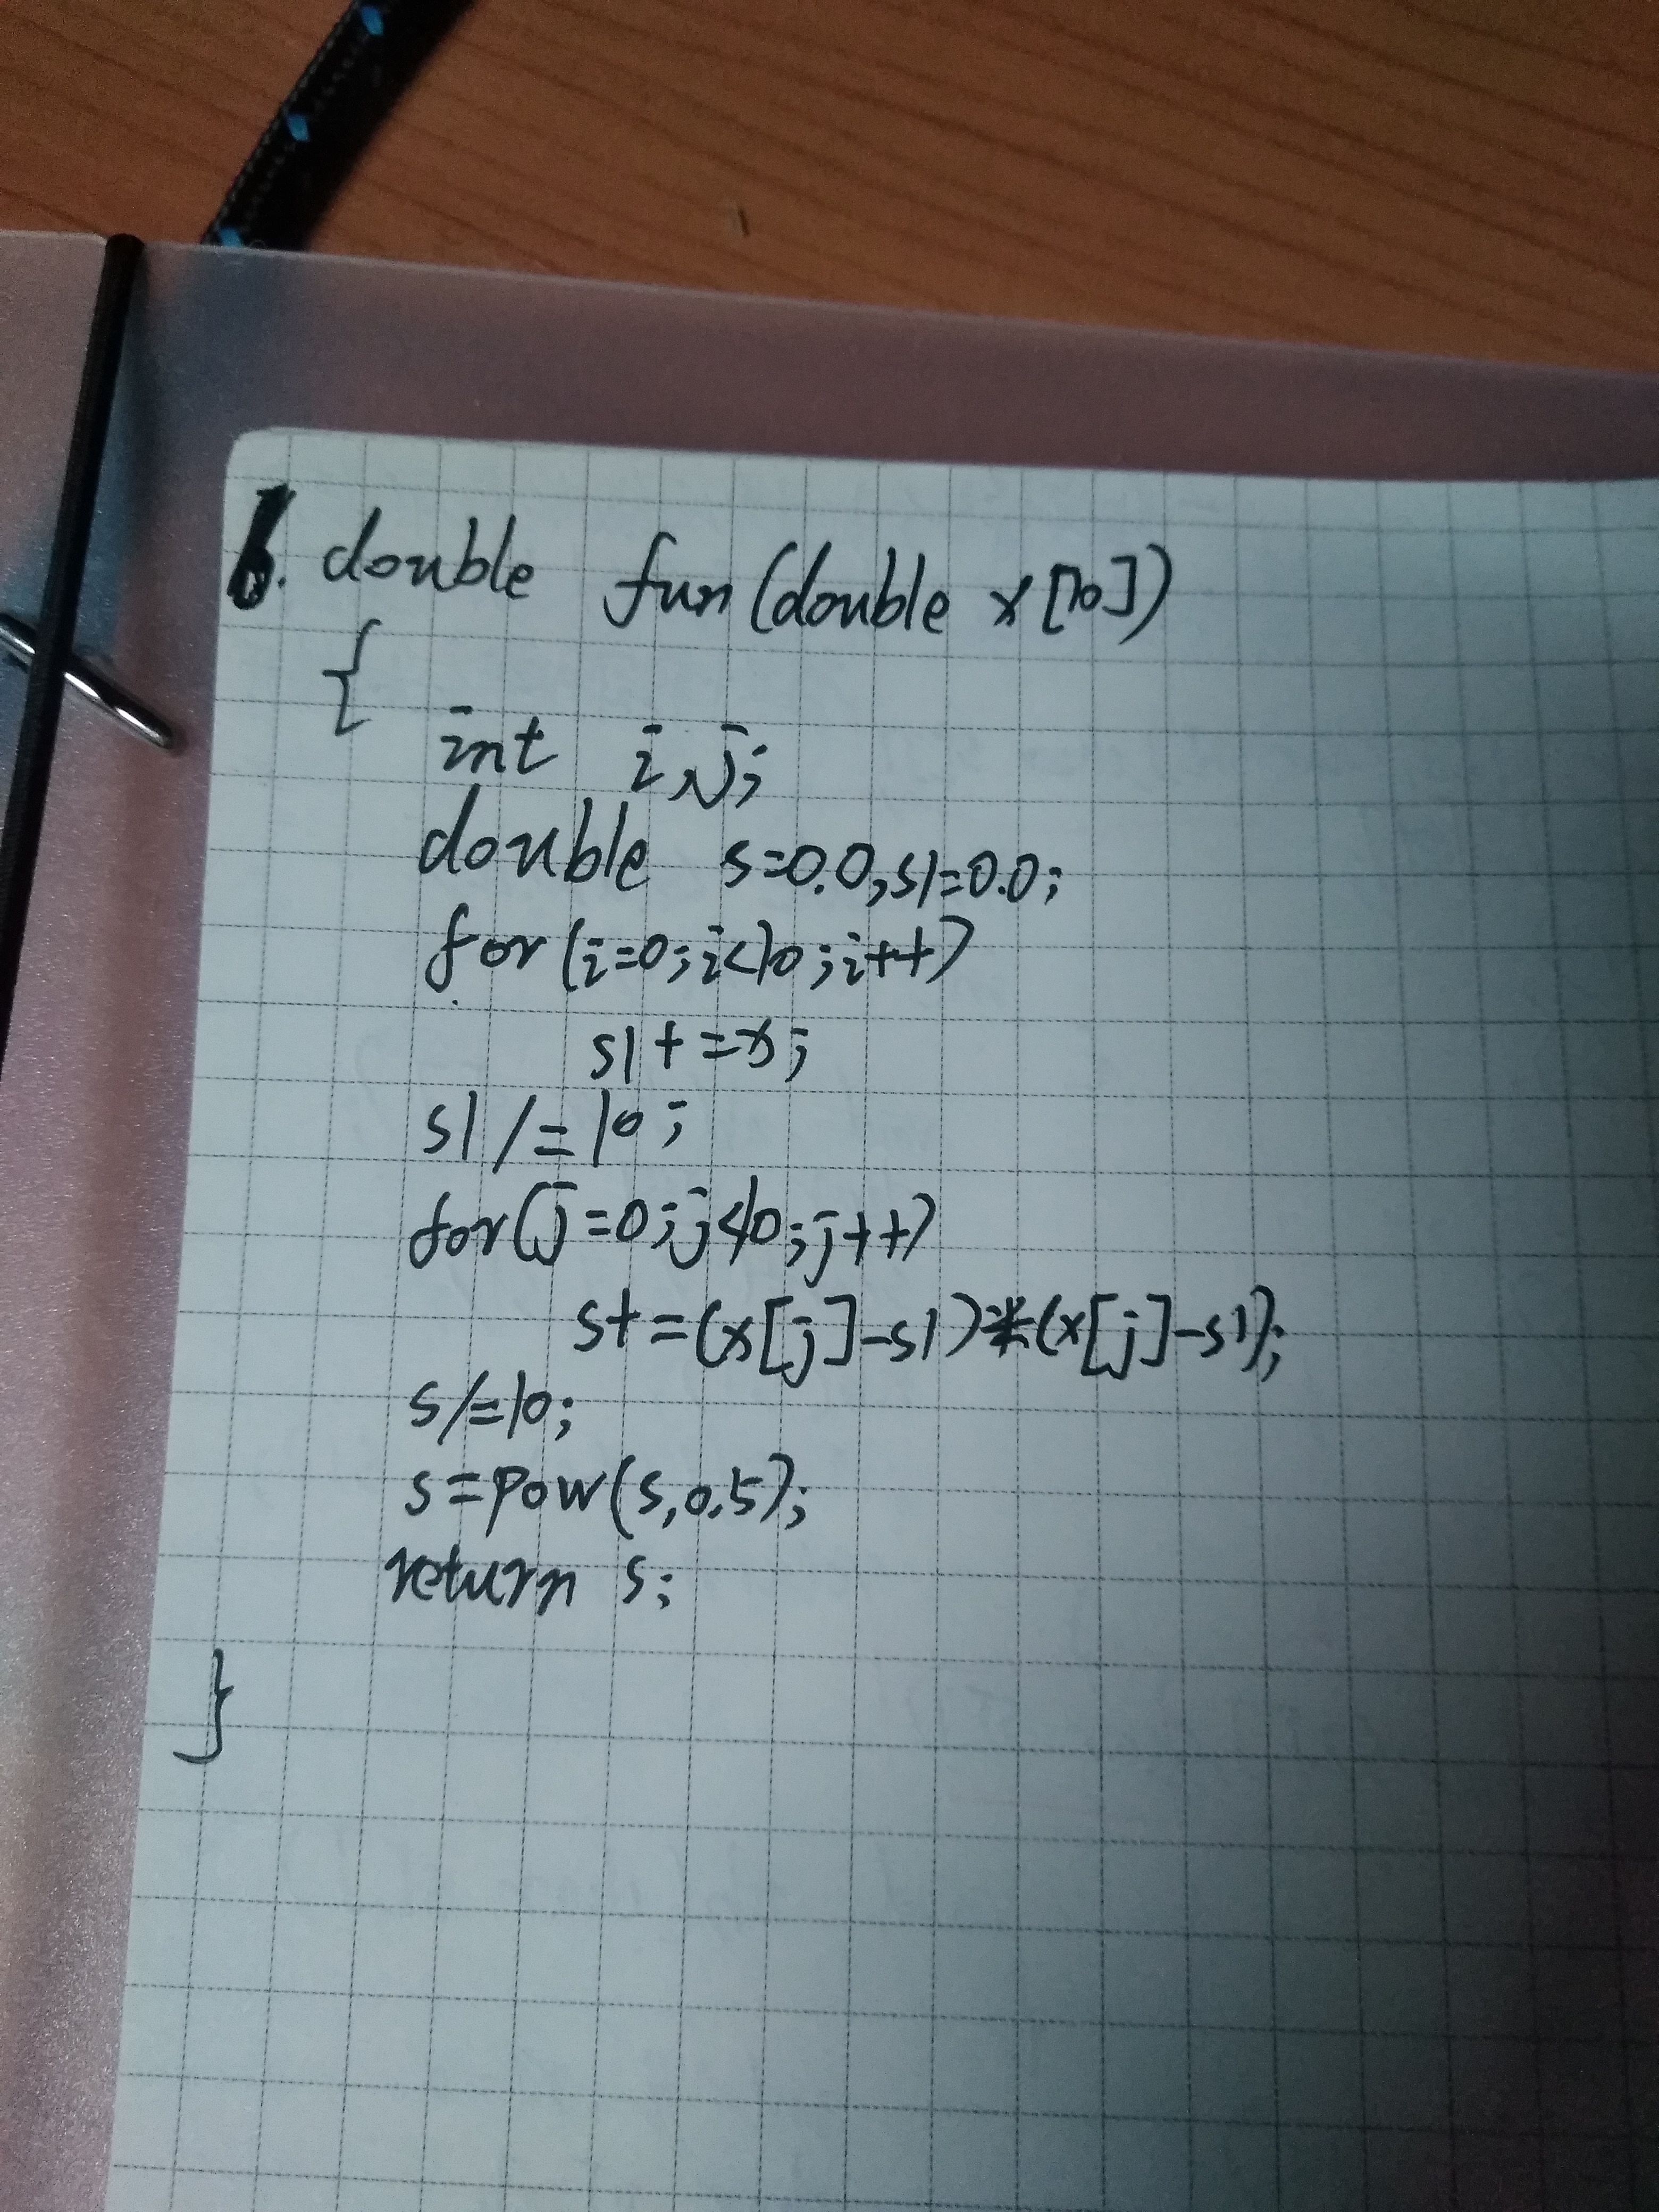 6. double fun(double x[10])
{
int i,j;
double s=0.0,s1=0.0;
for(i=0;i<10;i++)
s1+=x;
s1/=10;
for(j=0;j<10;j++)
s+=(x[j]-s1)*(x[j]-s1);
s/=10;
s=pow(s,0.5);
return s;
}